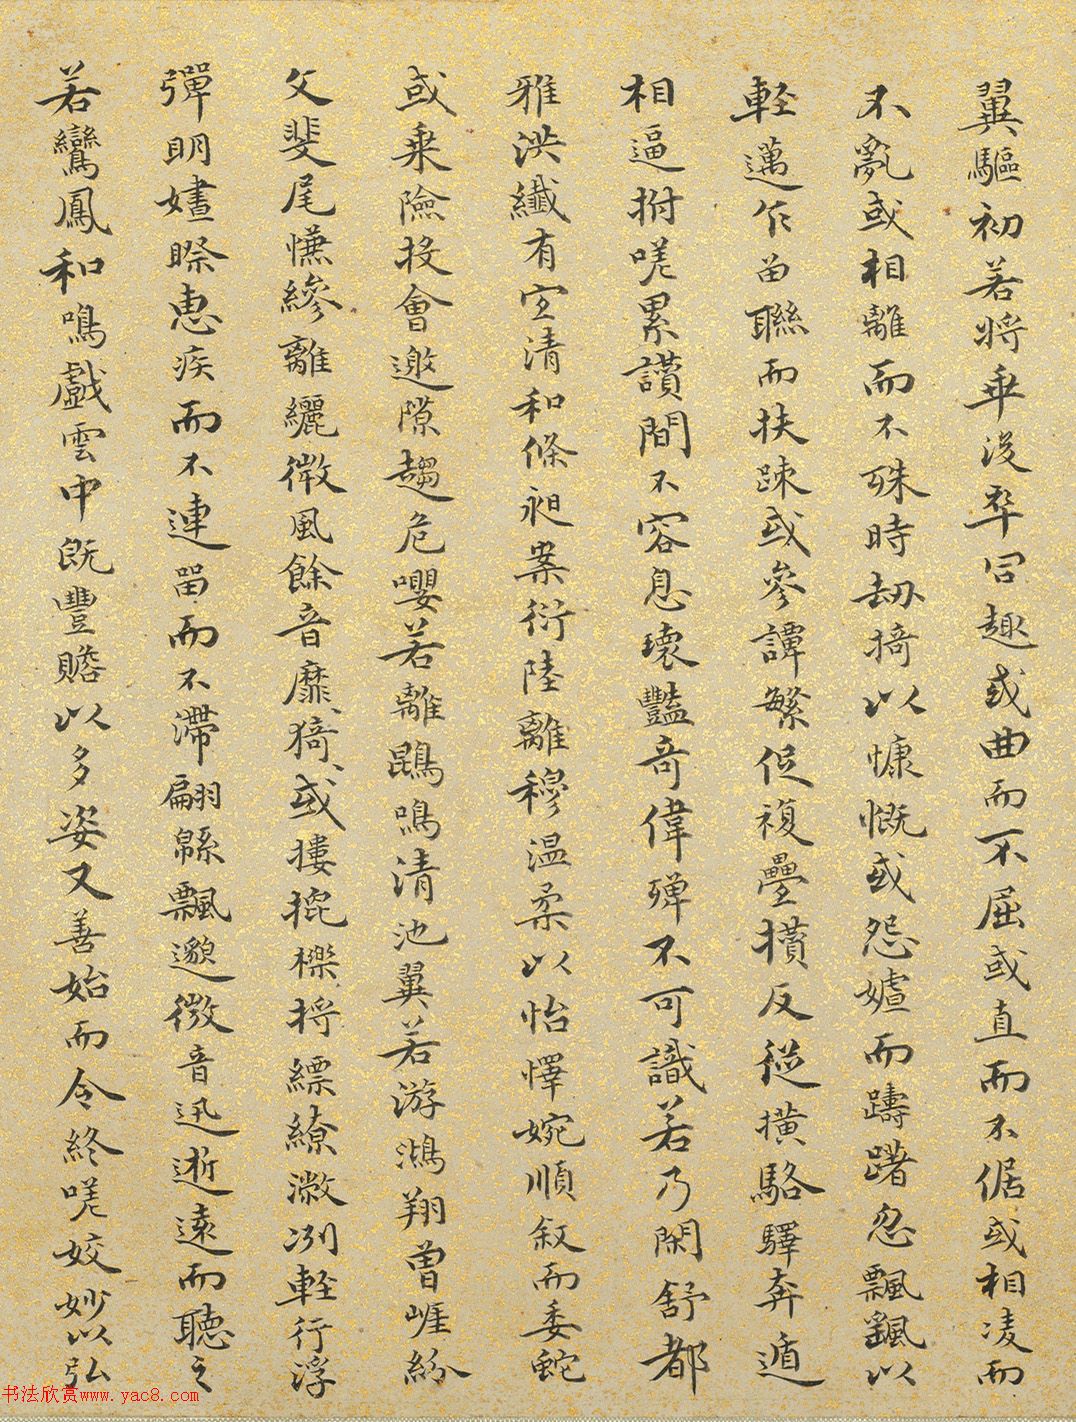 翼驅初若将乖後卒同趣或曲而不屈或直而不倨或相凌而
不亂或相離而不殊時劫掎以慷慨或怨嫭而躊躇忽飄颻以
軽邁乍留聯而扶踈或参譚繁促複疊攢仄従横駱驛奔遁
相逼拊嗟累讃間不容息瓌豔奇偉殫不可識若乃閑舒都
雅洪纖有宜清和條昶案衍陸離穆温柔以怡懌婉順叙而委蛇
或乗險投會邀隙趨危嚶若離鵾鳴清池翼若游鴻翔曽崕紛
文斐尾慊縿離纚微風餘音靡靡猗猗或摟批櫟捋縹繚潎冽軽行浮
彈明嫿䁙惠疾而不速留而不滞翩緜飄邈微音迅逝遠而聴之
若鸞鳳和鳴戲雲中既豐贍以多姿又善始而令終嗟姣妙以弘
书法欣赏www.yac8.com